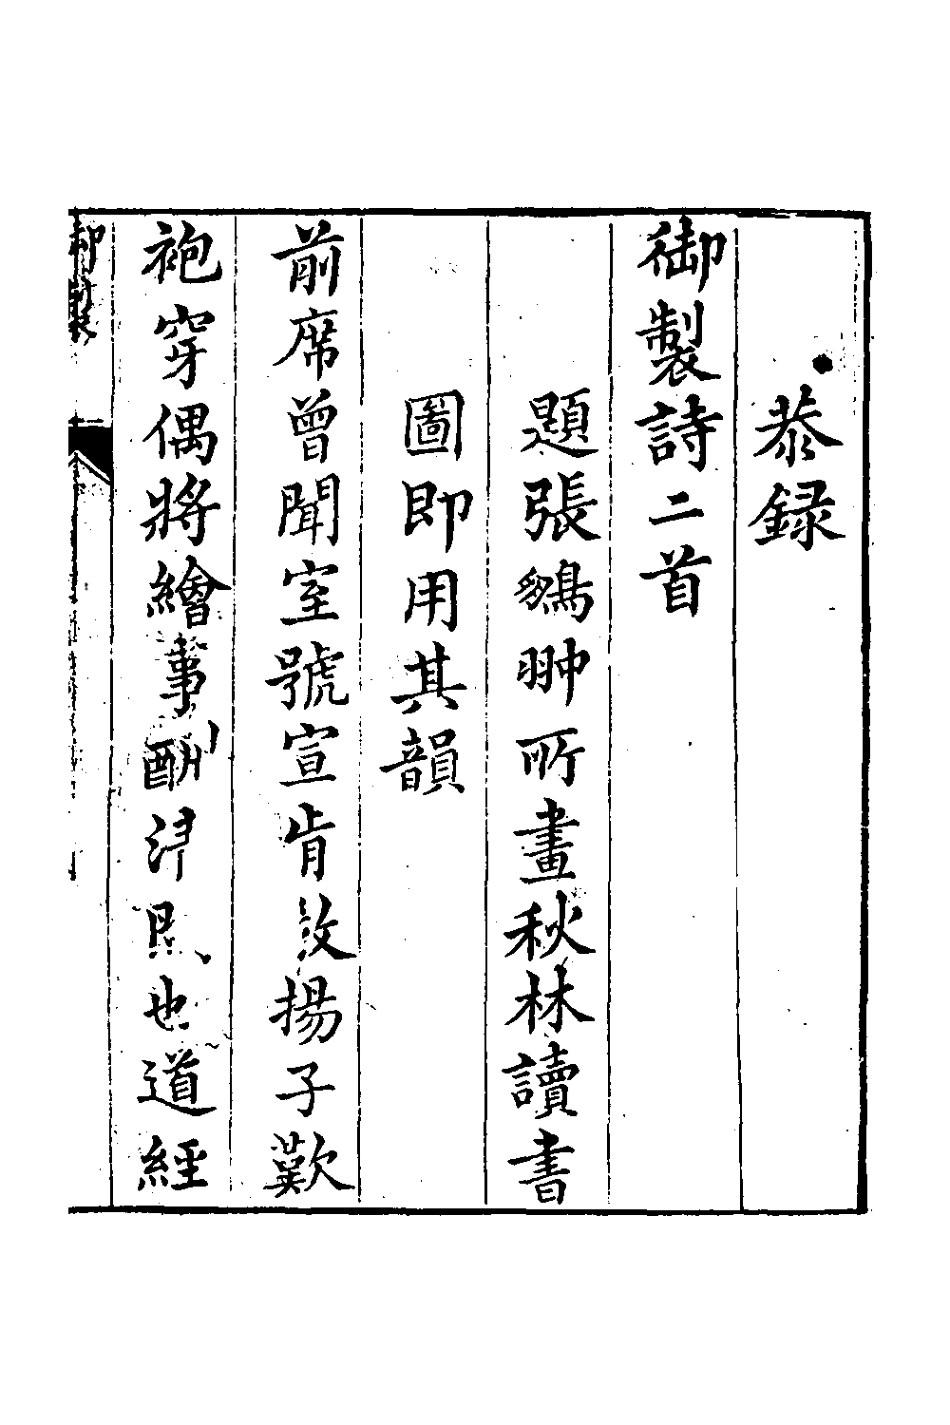 恭録
御製詩二首
題張鵬翀所畫秋林讀書
圖即用其韻
前席曾聞室號宣肯揚子歎
袍穿偶將繪事酬也道經
御製